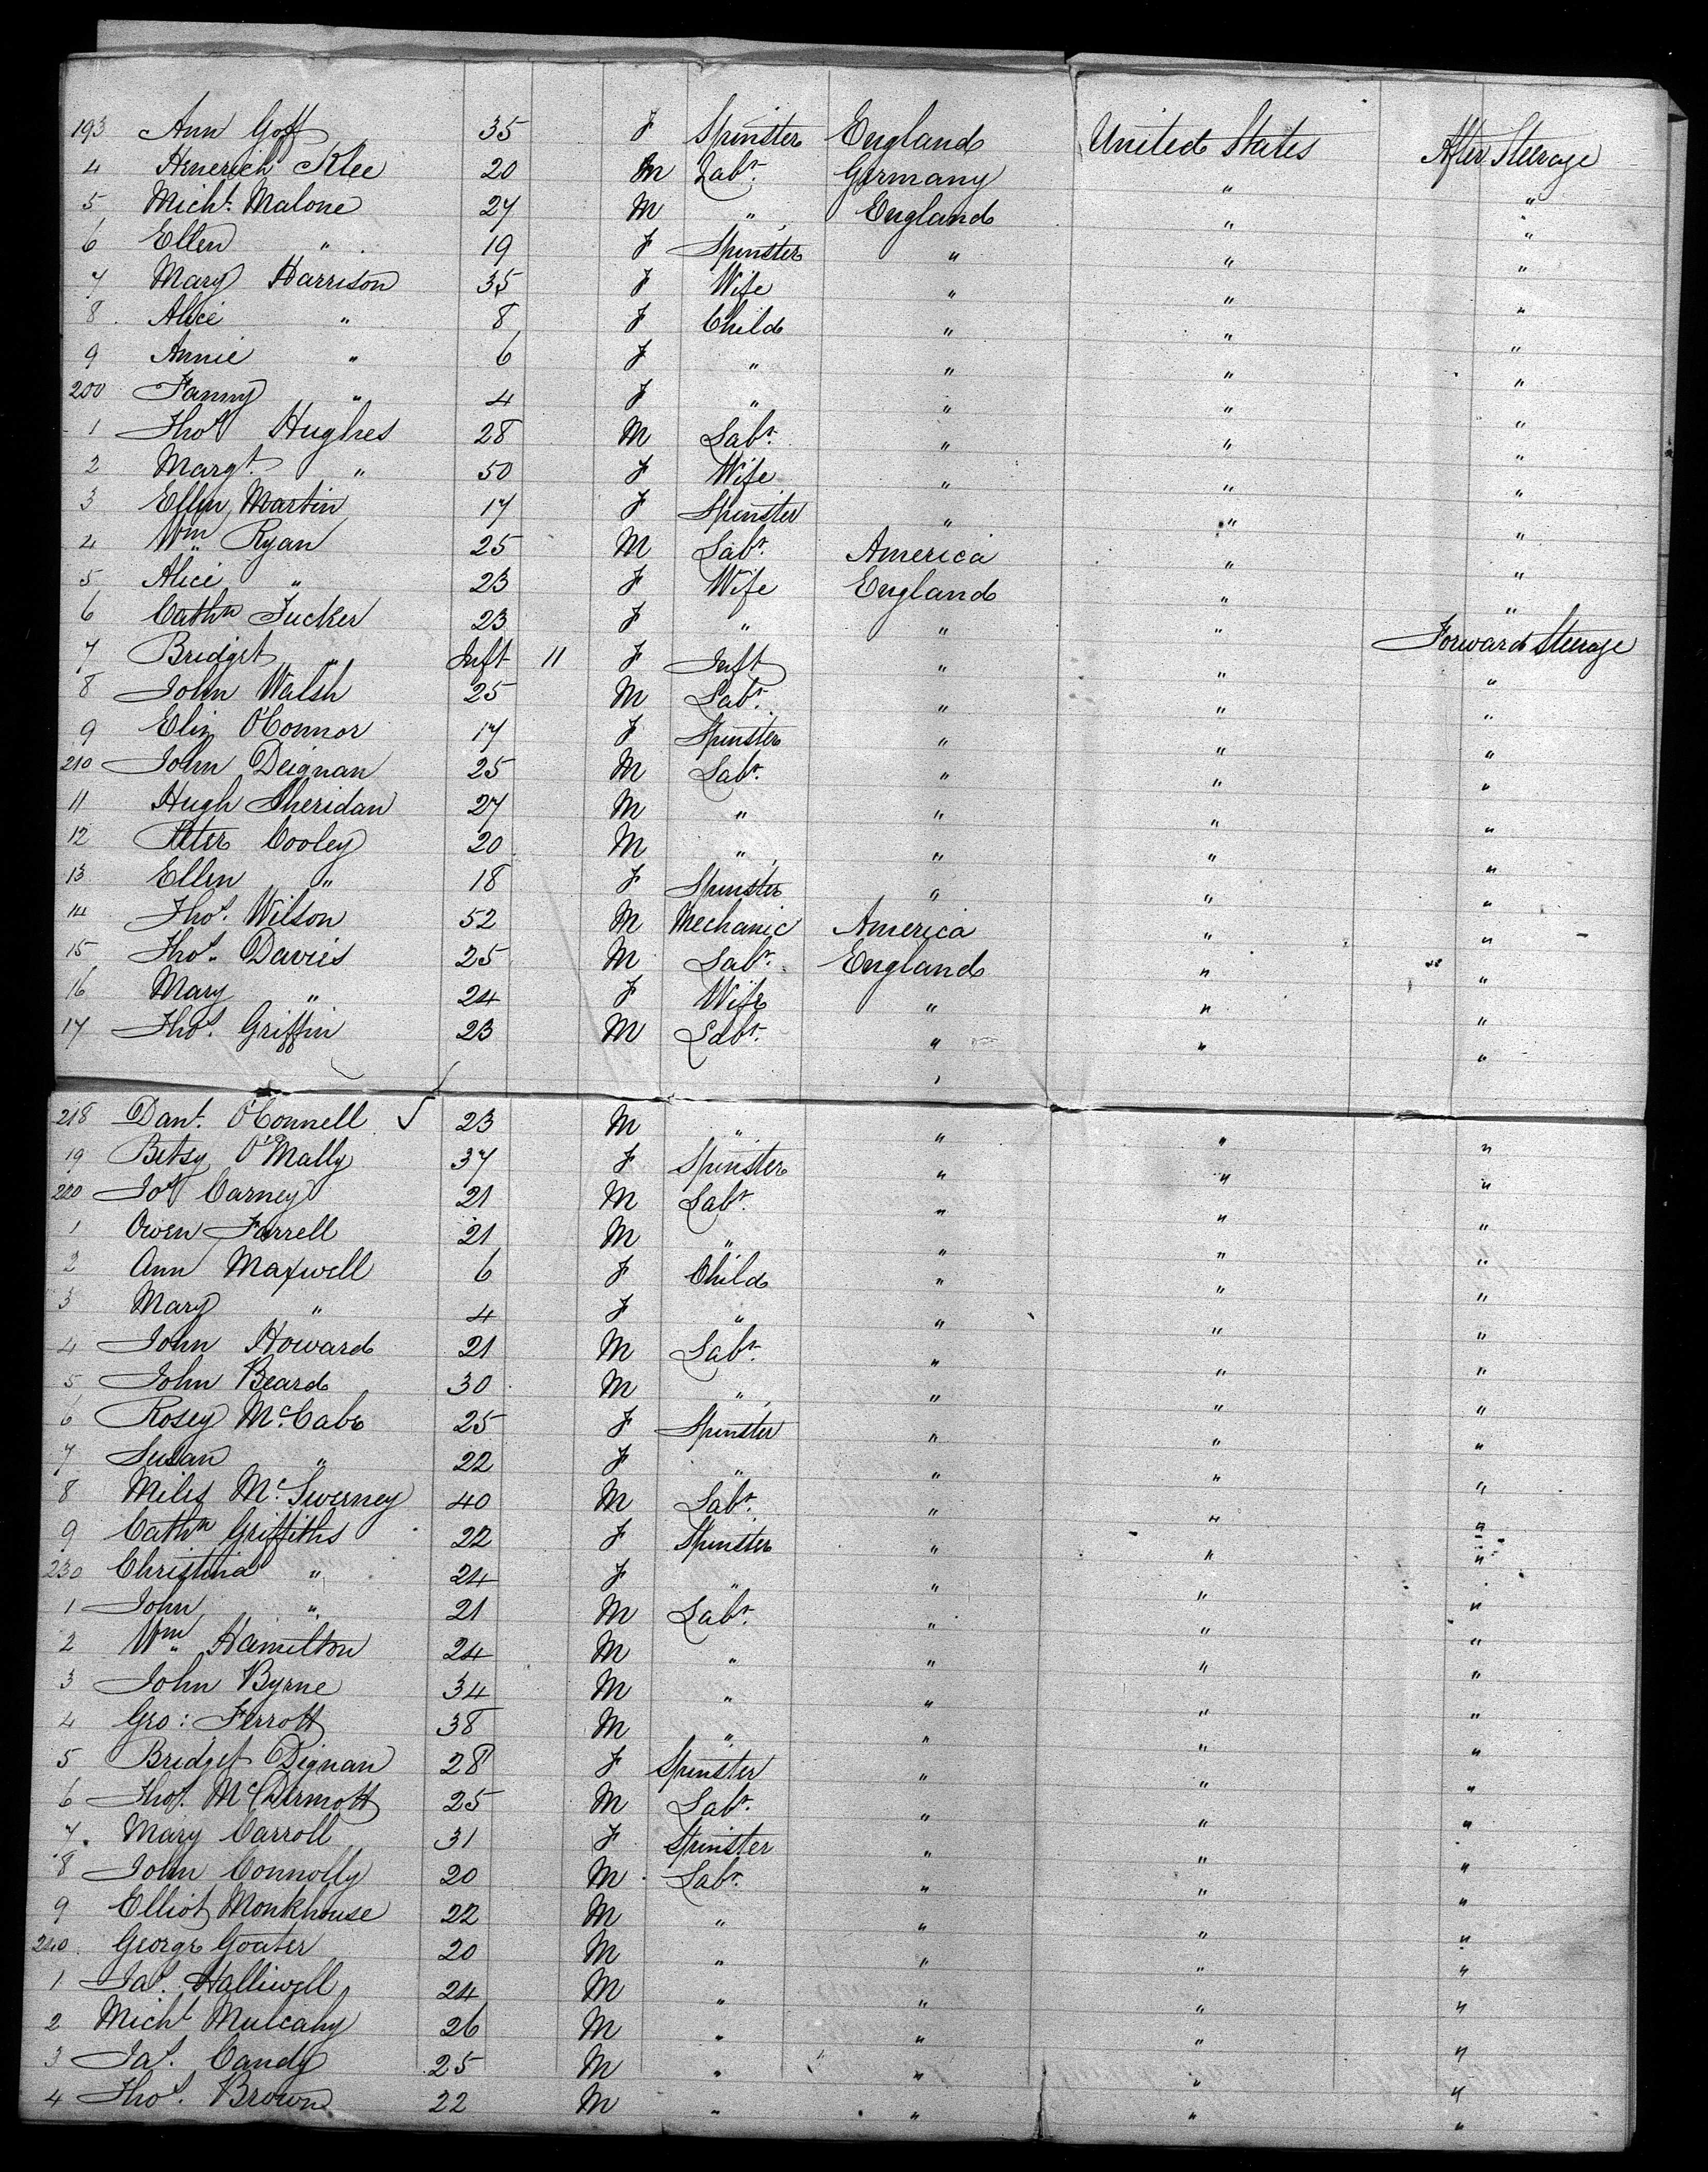 193 Ann Goff 35 F Spinster England United States After Steerage
4 Hinerich Klee 20 M Labr. Germany " "
5 Michl. Malone 27 M " England " "
6 Ellen " 19 F Spinster " " "
7 Mary Harrison 35 F Wife " " "
8 Alice " 8 F Child " " "
9 Annie " 6 F " " " "
200 Fanny " 4 F " " " "
1 Thos Hughes 28 M Labr. " " "
2 Margt. " 50 F Wife " " "
3 Ellen Martin 17 F Spinster " " "
4 Wm Ryan 25 M Labr. America " "
5 Alice " 23 F Wife England " "
6 Cathn Tucker 23 F " " " Forward Steerage
7 Bridget " Inft 11 F Inft " " "
8 John Walsh 25 M Labr. " " "
9 Eliz O'Connor 17 F Spinster " " "
210 John Deignan 25 M Labr. " " "
11 Hugh Sheridan 27 M " " " "
12 Peter Cooley 20 M " " " "
13 Ellen " 18 F Spinster " " "
14 Thos. Wilson 52 M Mechanic America " "
15 Thos. Davies 25 M Labr. England " "
16 Mary " 24 F Wife " " "
17 Thos. Griffin 23 M Labr. " " "
218 Danl. O'Connell 23 M " " " "
19 Betsy O'Mally 37 F Spinster " " "
220 Jos Carney 21 M Labr. " " "
1 Owen Farrell 21 M " " " "
2 Ann Maxwell 6 F Child " " "
3 Mary " 4 F " " " "
4 John Howard 21 M Labr. " " "
5 John Beard 30 M " " " "
6 Rosey McCabe 25 F Spinster " " "
7 Susan " 22 F " " " "
8 Miles McSwerney 40 M Labr. " " "
9 Cathn Griffiths 22 F Spinster " " "
230 Christina " 24 F " " " "
1 John " 21 M Labr. " " "
2 Wm Hamilton 24 M " " " "
3 John Byrne 34 M " " " "
4 Geo: Ferrott 38 M " " " "
5 Bridget Dignan 28 F Spinster " " "
6 Thos. McDermott 25 M Labr. " " "
7 Mary Carroll 31 F Spinster " " "
8 John Connolly 20 M Labr. " " "
9 Elliot Monkhouse 22 M " " " "
240 George Goater 20 M " " " "
1 Jas. Halliwell 24 M " " " "
2 Michl Mulcahy 26 M " " " "
3 Jas. Candy 25 M " " " "
4 Thos. Brown 22 M " " " "